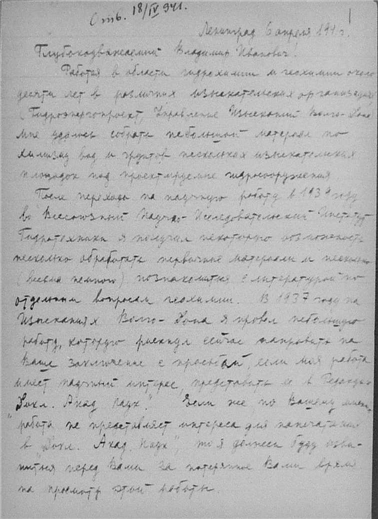 Отв. 18/IV 941.
1
Ленинград 6 апреля 1941 г.
Глубокоуважаемый Владимир Иванович!
Работая в области гидрохимии и геохимии около
десяти лет в различных изыскательских организациях
(Гидроэнергопроект, Управление Изысканий Волго-Дона
мне удалось собрать небольшой материал по
химизму вод и грунтов нескольких изыскательских
площадок под проектируемые гидросооружения
После перехода на научную работу в 1939 году
во Всесоюзный Научно-Исследовательский Институт
Гидротехники я получил некоторую возможность
несколько обработать первичные материалы и
(весьма немного) познакомится с литературой по
отдельным вопросам геохимии. В 1937 году на
Изысканиях Волго-Дона я провел небольшую
работу, которую рискнул сейчас направить на
Ваше заключение с просьбой, если моя работа
имеет научный интерес, представить ее в Редакцию
"Докл. Акад. Наук". Если же по Вашему мнению
работа не представляет интереса для напечатания
в "Докл. Акад. Наук", то я должен буду изви-
ниться перед Вами за потерянное Вами время
на просмотр этой работы.